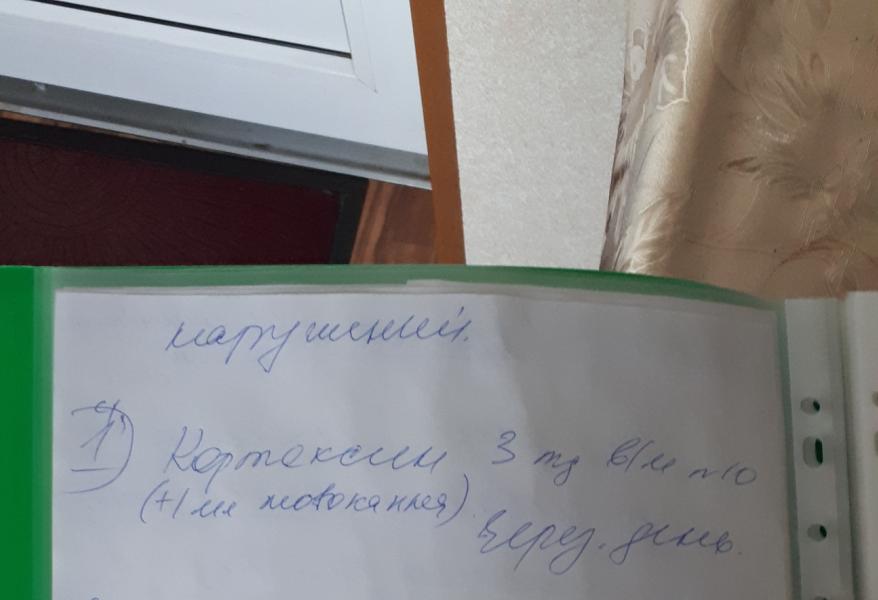 нарушений.
1) Кортексин 3 mg в/м №10
(+1 мл новокаина)
через день.